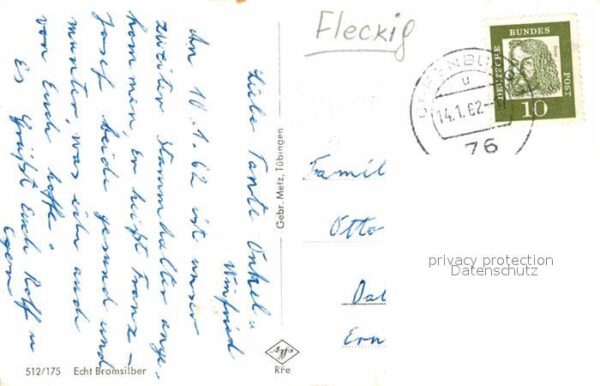 Liebe Tante Onkel u
Winfried
Am 10.1.62 ist unser
zweiter Stammhalter ange-
kommen. Er heißt Franz-
Josef beide gesund und
munter, was ihr auch
von Euch hoffe.
Es Grüßt Euch Rolf u
Egon
512/175 Echt Bromsilber
Gebr. Metz, Tübingen
Agfa
RFe
Fleckig
DEUTSCHE
BUNDES
POST
10
14.1.62
76
Famil
Otto
Ern
privacy protection
Datenschutz